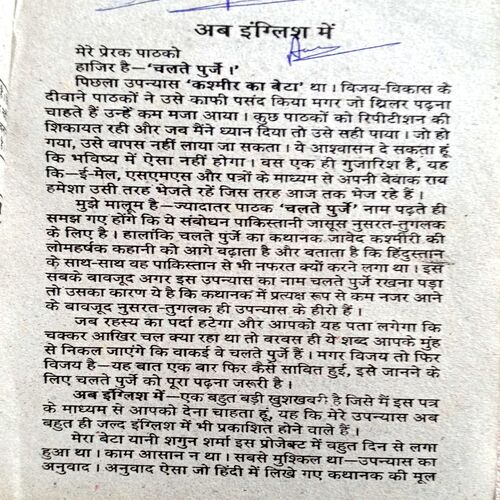 अब इंग्लिश में
मेरे प्रेरक पाठको
हाजिर है—‘चलते पुर्जे।’
पिछला उपन्यास ‘कश्मीर का बेटा’ था। विजय-विकास के
दीवाने पाठकों ने उसे काफी पसंद किया मगर जो थ्रिलर पढ़ना
चाहते हैं उन्हें कम मजा आया। कुछ पाठकों को रिपीटीशन की
शिकायत रही और जब मैंने ध्यान दिया तो उसे सही पाया। जो हो
गया, उसे वापस नहीं लाया जा सकता। ये आश्वासन दे सकता हूं
कि भविष्य में ऐसा नहीं होगा। बस एक ही गुजारिश है, यह
कि—ई-मेल, एसएमएस और पत्रों के माध्यम से अपनी बेबाक राय
हमेशा उसी तरह भेजते रहें जिस तरह आज तक भेज रहे हैं।
मुझे मालूम है—ज्यादातर पाठक ‘चलते पुर्जे’ नाम पढ़ते ही
समझ गए होंगे कि ये संबोधन पाकिस्तानी जासूस नुसरत-तुगलक
के लिए है। हालांकि चलते पुर्जे का कथानक जावेद कश्मीरी की
लोमहर्षक कहानी को आगे बढ़ाता है और बताता है कि हिंदुस्तान
के साथ-साथ वह पाकिस्तान से भी नफरत क्यों करने लगा था। इस
सबके बावजूद अगर इस उपन्यास का नाम चलते पुर्जे रखना पड़ा
तो उसका कारण ये है कि कथानक में प्रत्यक्ष रूप से कम नजर आने
के बावजूद नुसरत-तुगलक ही उपन्यास के हीरो हैं।
जब रहस्य का पर्दा हटेगा और आपको यह पता लगेगा कि
चक्कर आखिर चल क्या रहा था तो बरबस ही ये शब्द आपके मुंह
से निकल जाएंगे कि वाकई वे चलते पुर्जे हैं। मगर विजय तो फिर
विजय है—यह बात एक बार फिर कैसे साबित हुई, इसे जानने के
लिए चलते पुर्जे को पूरा पढ़ना जरूरी है।
अब इंग्लिश में—एक बहुत बड़ी खुशखबरी है जिसे मैं इस पत्र
के माध्यम से आपको देना चाहता हूं, यह कि मेरे उपन्यास अब
बहुत ही जल्द इंग्लिश में भी प्रकाशित होने वाले हैं।
मेरा बेटा यानी शगुन शर्मा इस प्रोजेक्ट में बहुत दिन से लगा
हुआ था। काम आसान न था। सबसे मुश्किल था—उपन्यास का
अनुवाद। अनुवाद ऐसा जो हिंदी में लिखे गए कथानक की मूल